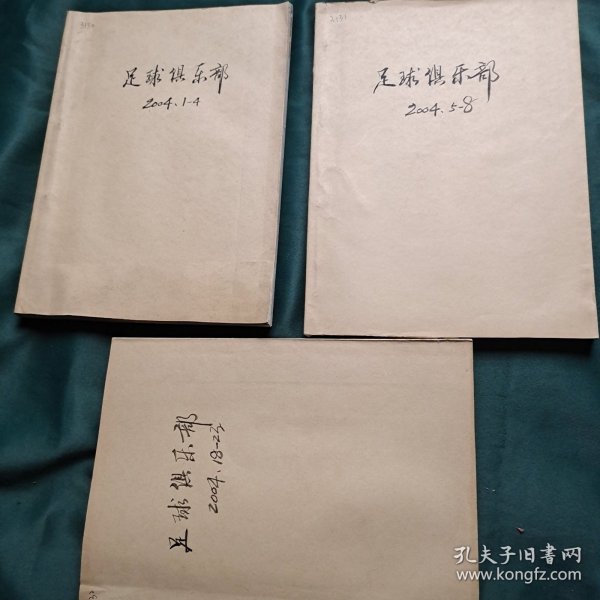 3130
足球俱乐部
2004.1-4
3131
足球俱乐部
2004.5-8
足球俱乐部
2004.18-22
孔夫子旧书网
www.kongfz.com